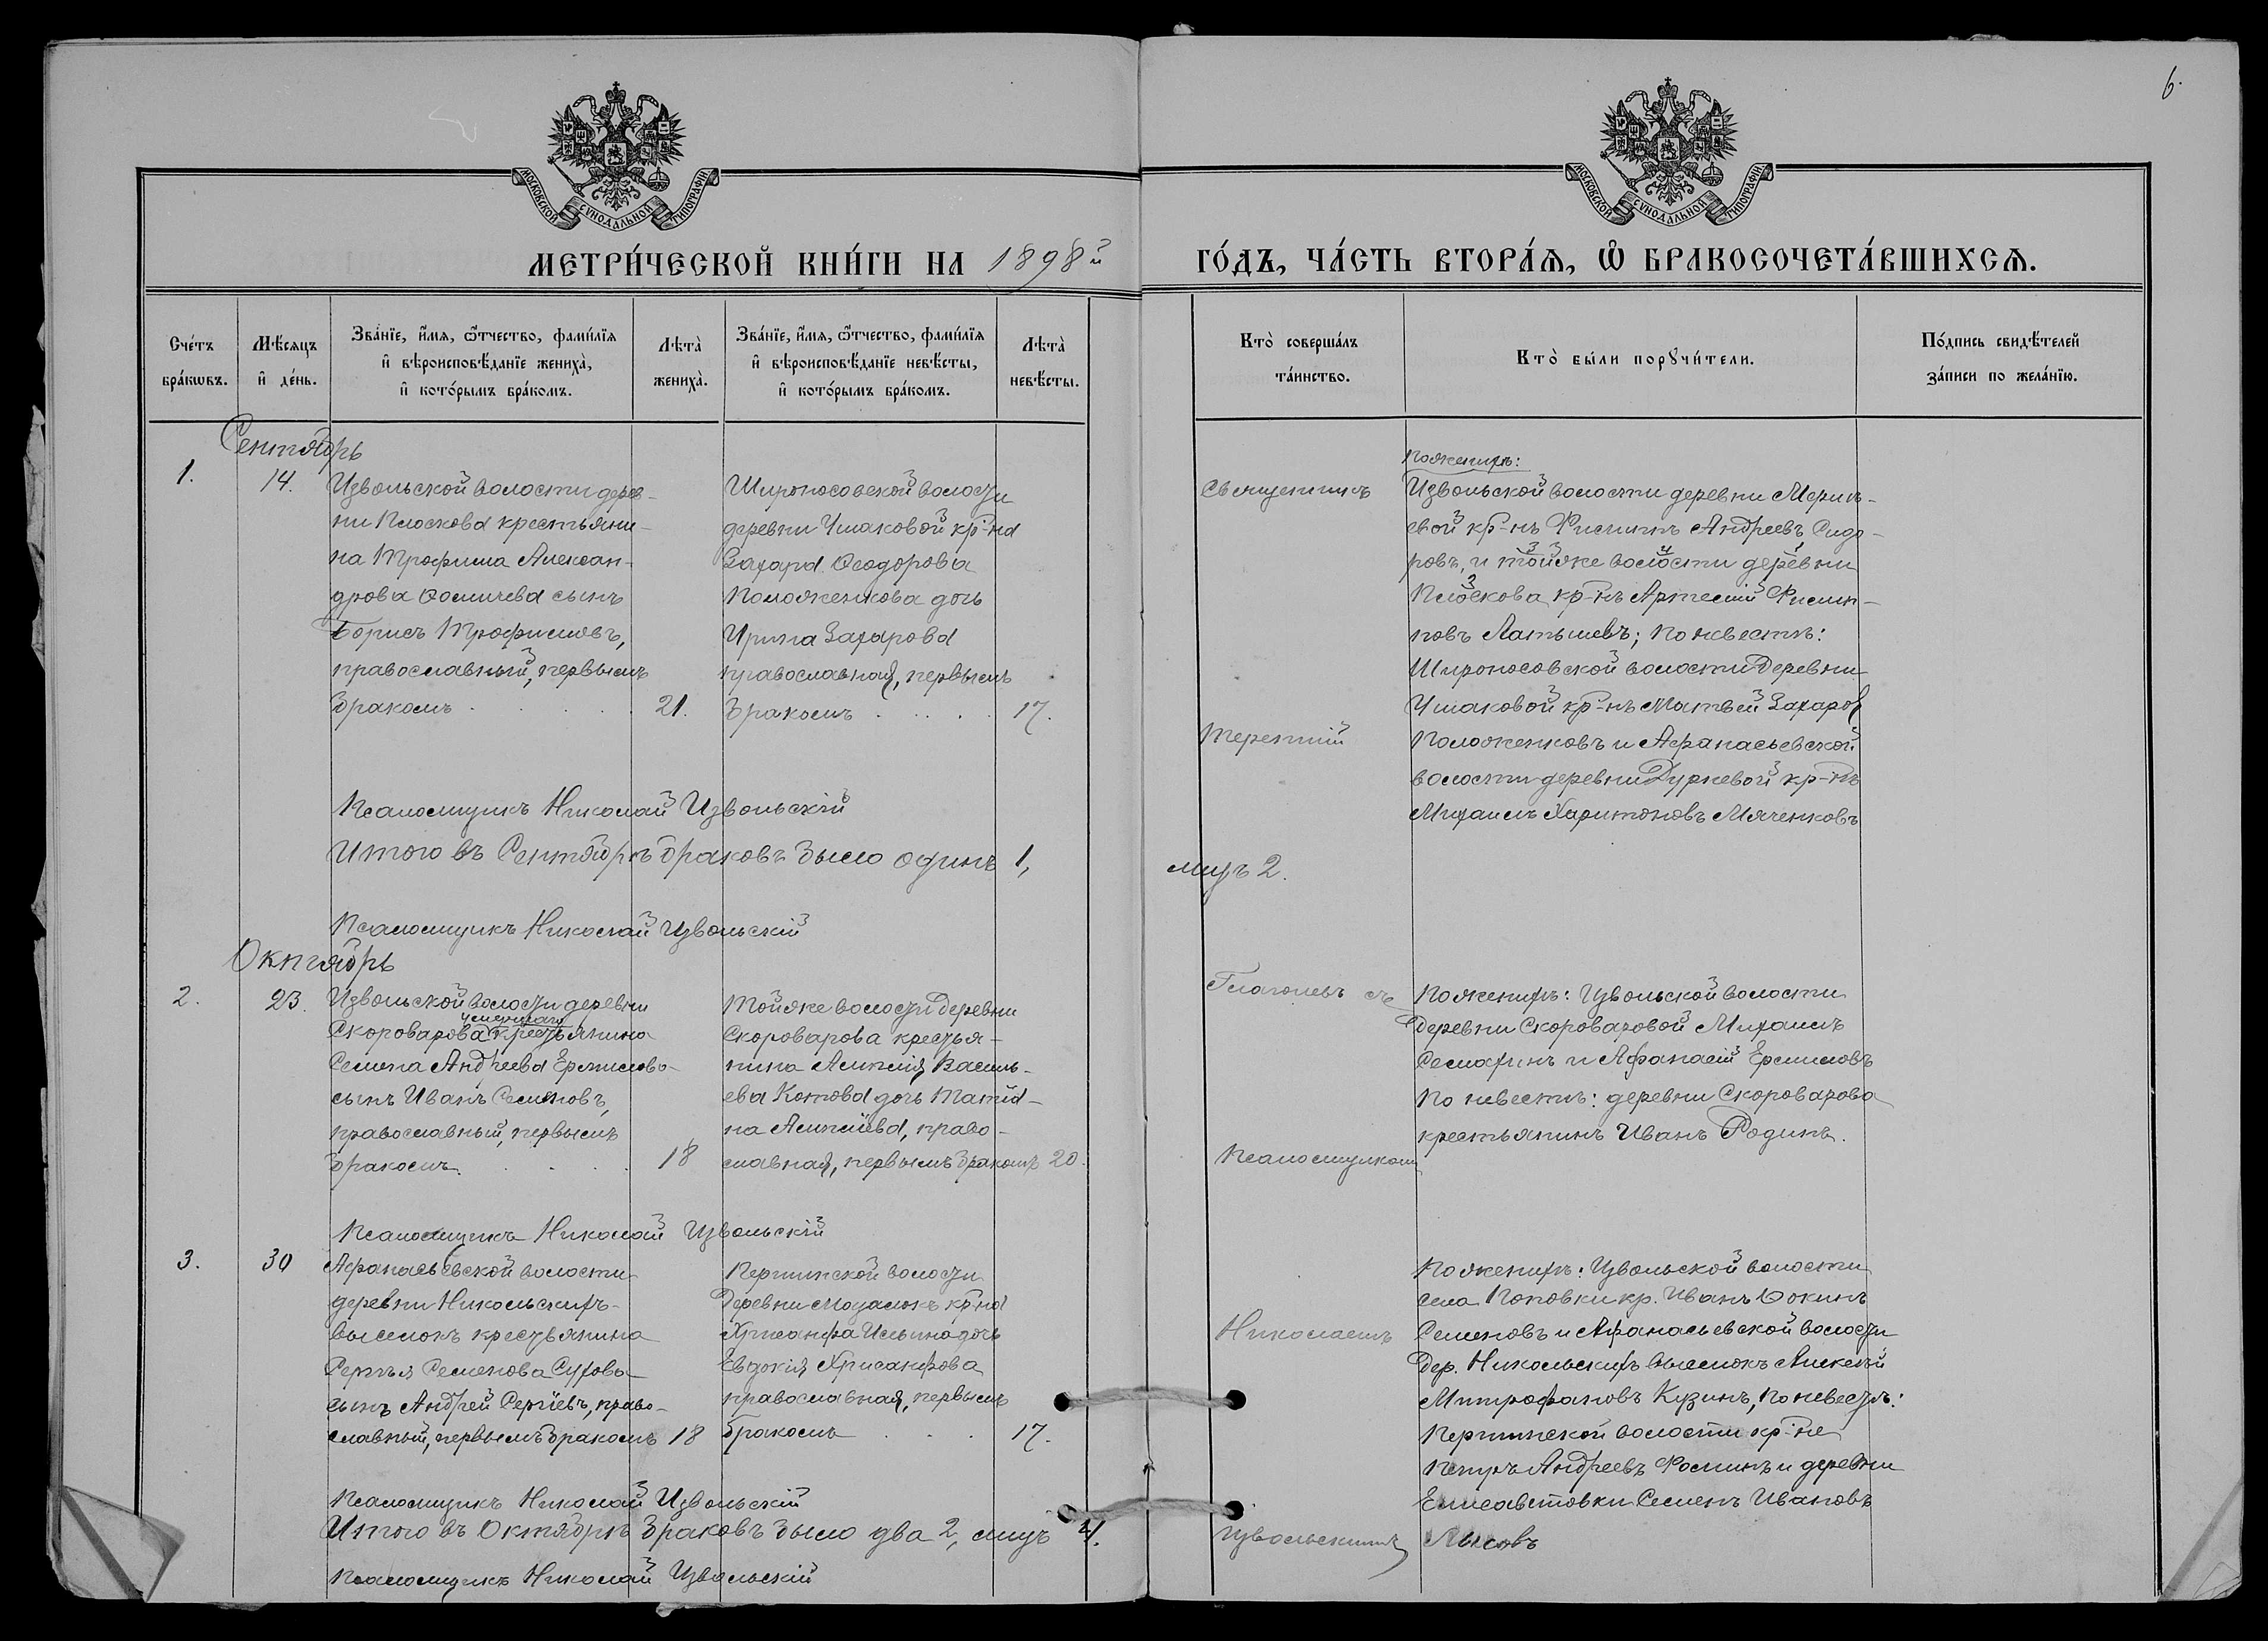 6.
МОСКОВСКОЙ СѴНОДАЛЬНОЙ ТИПОГРАФІИ
МОСКОВСКОЙ СѴНОДАЛЬНОЙ ТИПОГРАФІИ
МЕТРИ́ЧЕСКОЙ КНИ́ГИ НА 1898й
ГО́ДЪ, ЧА́СТЬ ВТОРА́Ѧ, Ѡ҆ БРАКОСОЧЕТА́ВШИХСѦ.
Сче́тъ
бра́кѡвъ.
Мѣ́сѧцъ
и҆ де́нь.
Зва́нїе, и҆́мѧ, ѿ́чество, фами́лїѧ
и҆ вѣроисповѣ́данїе жениха̀,
и҆ кото́рымъ бра́комъ.
Лѣта̀
жениха̀.
Зва́нїе, и҆́мѧ, ѿ́чество, фами́лїѧ
и҆ вѣроисповѣ́данїе невѣ́сты,
и҆ кото́рымъ бра́комъ.
Лѣта̀
невѣ́сты.
Кто̀ соверша́лъ
та́инство.
Кто̀ бы́ли порꙋчи́тели.
По́дпись свидѣ́телей
за́писи по жела́нїю.
Сентябрь
1.
14.
Извольской волости дерев-
ни Плоскова крестьяни-
на Трофима Алексан-
дрова Ѳомичева сынъ
Борисъ Трофимовъ,
православный, первымъ
бракомъ
21.
Широносовской волости
деревни Ушаковой кр-на
Захара Ѳеодорова
Положенкова дочь
Ирина Захарова
православная, первымъ
бракомъ
17.
Священникъ
Терентій
По женихѣ:
Извольской волости деревни Мерин-
евой кр-нъ Филиппъ Андреевъ Сидо-
ровъ, и той же волости деревни
Плоскова кр-нъ Артемій Филип-
повъ Латышевъ; по невѣстѣ:
Широносовской волости деревни
Ушаковой кр-нъ Матвѣй Захаров
Положенковъ и Афанасьевской
волости деревни Дурневой кр-нъ
Михаилъ Харитоновъ Мяченковъ
Псаломщикъ Николай Извольскій
Итого въ Сентябрѣ браковъ было одинъ 1,
лицъ 2.
Псаломщикъ Николай Извольскій
Октябрь
2.
23.
Извольской волости деревни
Скороварова умершаго крестьянина
Семена Андреева Ермилова
сынъ Иванъ Семеновъ,
православный, первымъ
бракомъ.
18
Той же волости деревни
Скороварова крестья-
нина Алексія Василь-
ева Котова дочь Татіа-
на Алексіева, право-
славная, первымъ бракомъ
20.
Глаголевъ съ
Псаломщикомъ
По женихѣ: Извольской волости
деревни Скороваровой Михаилъ
Семахинъ и Афанасій Ермиловъ
По невестѣ: деревни Скороварова
крестьянинъ Иванъ Родинъ.
Псаломщикъ Николай Извольскій
3.
30
Афанасьевской волости
деревни Никольскихъ-
выселокъ крестьянина
Сергѣя Семенова Сухова
сынъ Андрей Сергіевъ, право-
славный, первымъ бракомъ
18
волости
кр-на
Хрисанфа Ильина дочь
Евдокія Хрисанфова
православная, первымъ
бракомъ
17.
Николаемъ
Извольскимъ
По женихѣ: Извольской волости
села Поповки кр. Иванъ Фокинъ
Семеновъ и Афанасьевской волости
дер. Никольскихъ выселокъ Алексѣй
Митрофановъ Кузинъ, по невестѣ:
волости кр-не
Петръ Андреевъ Фоминъ и деревни
Елисаветовки Семенъ Ивановъ
Лысовъ
Псаломщикъ Николай Извольскій
Итого въ Октябрѣ браковъ было два 2, лицъ 4.
Псаломщикъ Николай Извольскій